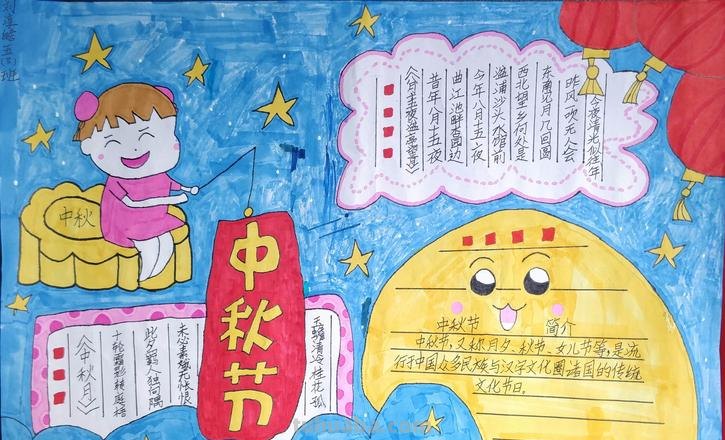 五班
中秋
中秋节
《八月十五夜湓亭望月》
昔年八月十五夜
曲江池畔杏园边
今年八月十五夜
湓浦沙头水馆前
西北望乡何处是
东南见月几回圆
昨风吹无人会
今夜清光似往年
《中秋月》
十轮霜影转庭梧
此夕羁人独向隅
未必素娥无怅恨
玉蟾清冷桂花孤
中秋节 简介
中秋节,又称月夕、秋节、女儿节等,是流
行于中国众多民族与汉字文化圈诸国的传统
文化节日。